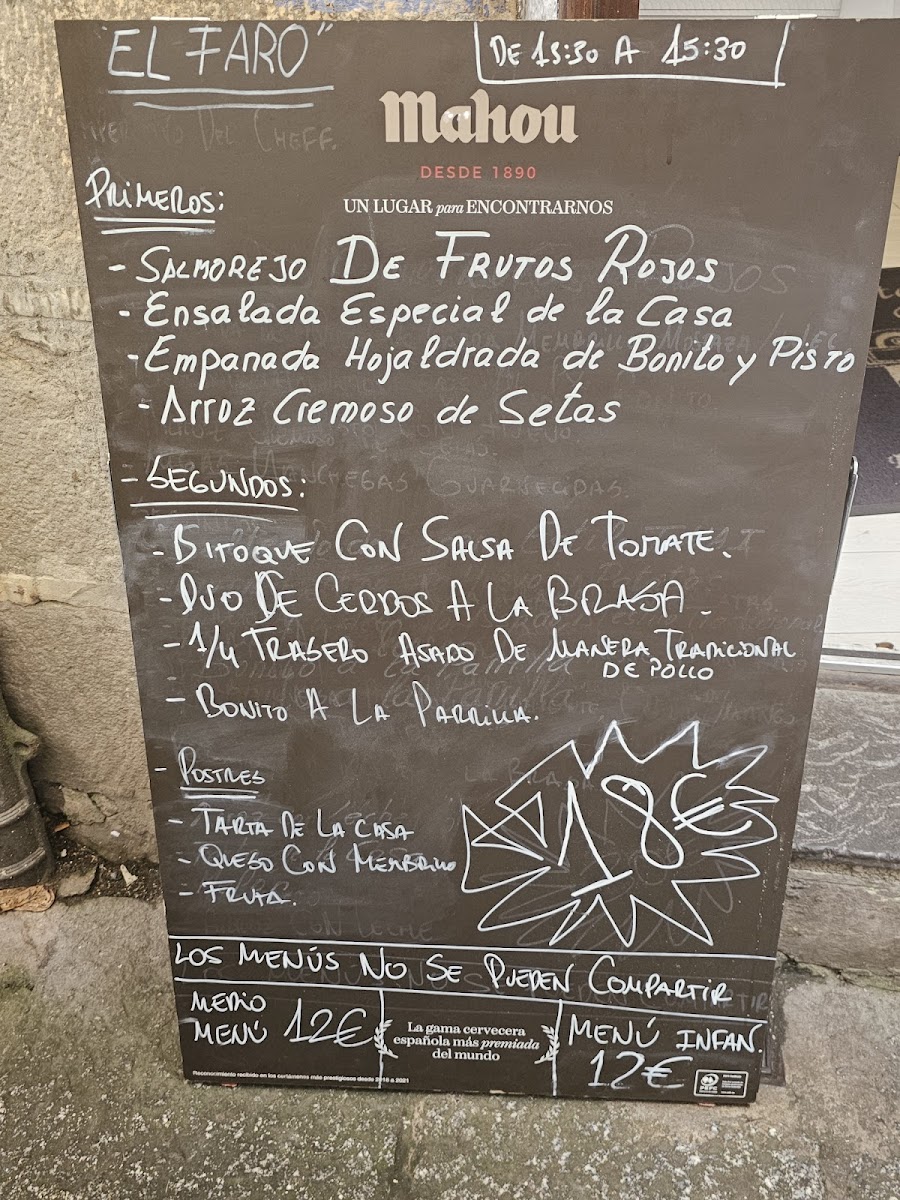 "EL FARO"
DE 13:30 A 15:30
Mahou
DESDE 1890
UN LUGAR para ENCONTRARNOS
DEL CHEFF.
PRIMEROS:
- SALMOREJO DE FRUTOS ROJOS
- Ensalada Especial de la Casa
- Empanada Hojaldrada de Bonito y PISTO
- Arroz Cremoso de Setas
- SEGUNDOS:
- BITOQUE CON SALSA DE TOMATE.
- DUO DE CERDOS A LA BRASA.
- 1/4 TRASERO ASADO DE MANERA TRADICIONAL
DE POLLO
- BONITO A LA PARRILLA.
- POSTRES
- TARTA DE LA CASA
- QUESO CON MEMBRILLO
- FRUTA.
18€
LOS MENÚS NO SE PUEDEN COMPARTIR
MEDIO
MENÚ 12€
La gama cervecera
española más premiada
del mundo
MENÚ INFAN
12€
Reconocimiento recibido en los certámenes más prestigiosos desde 2018 a 2021
PEFC